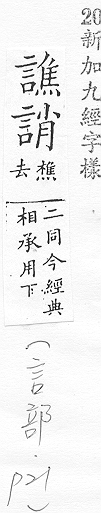 20新加九經字樣
譙誚
樵去
二同今經典
相承用下
(言部.p21)